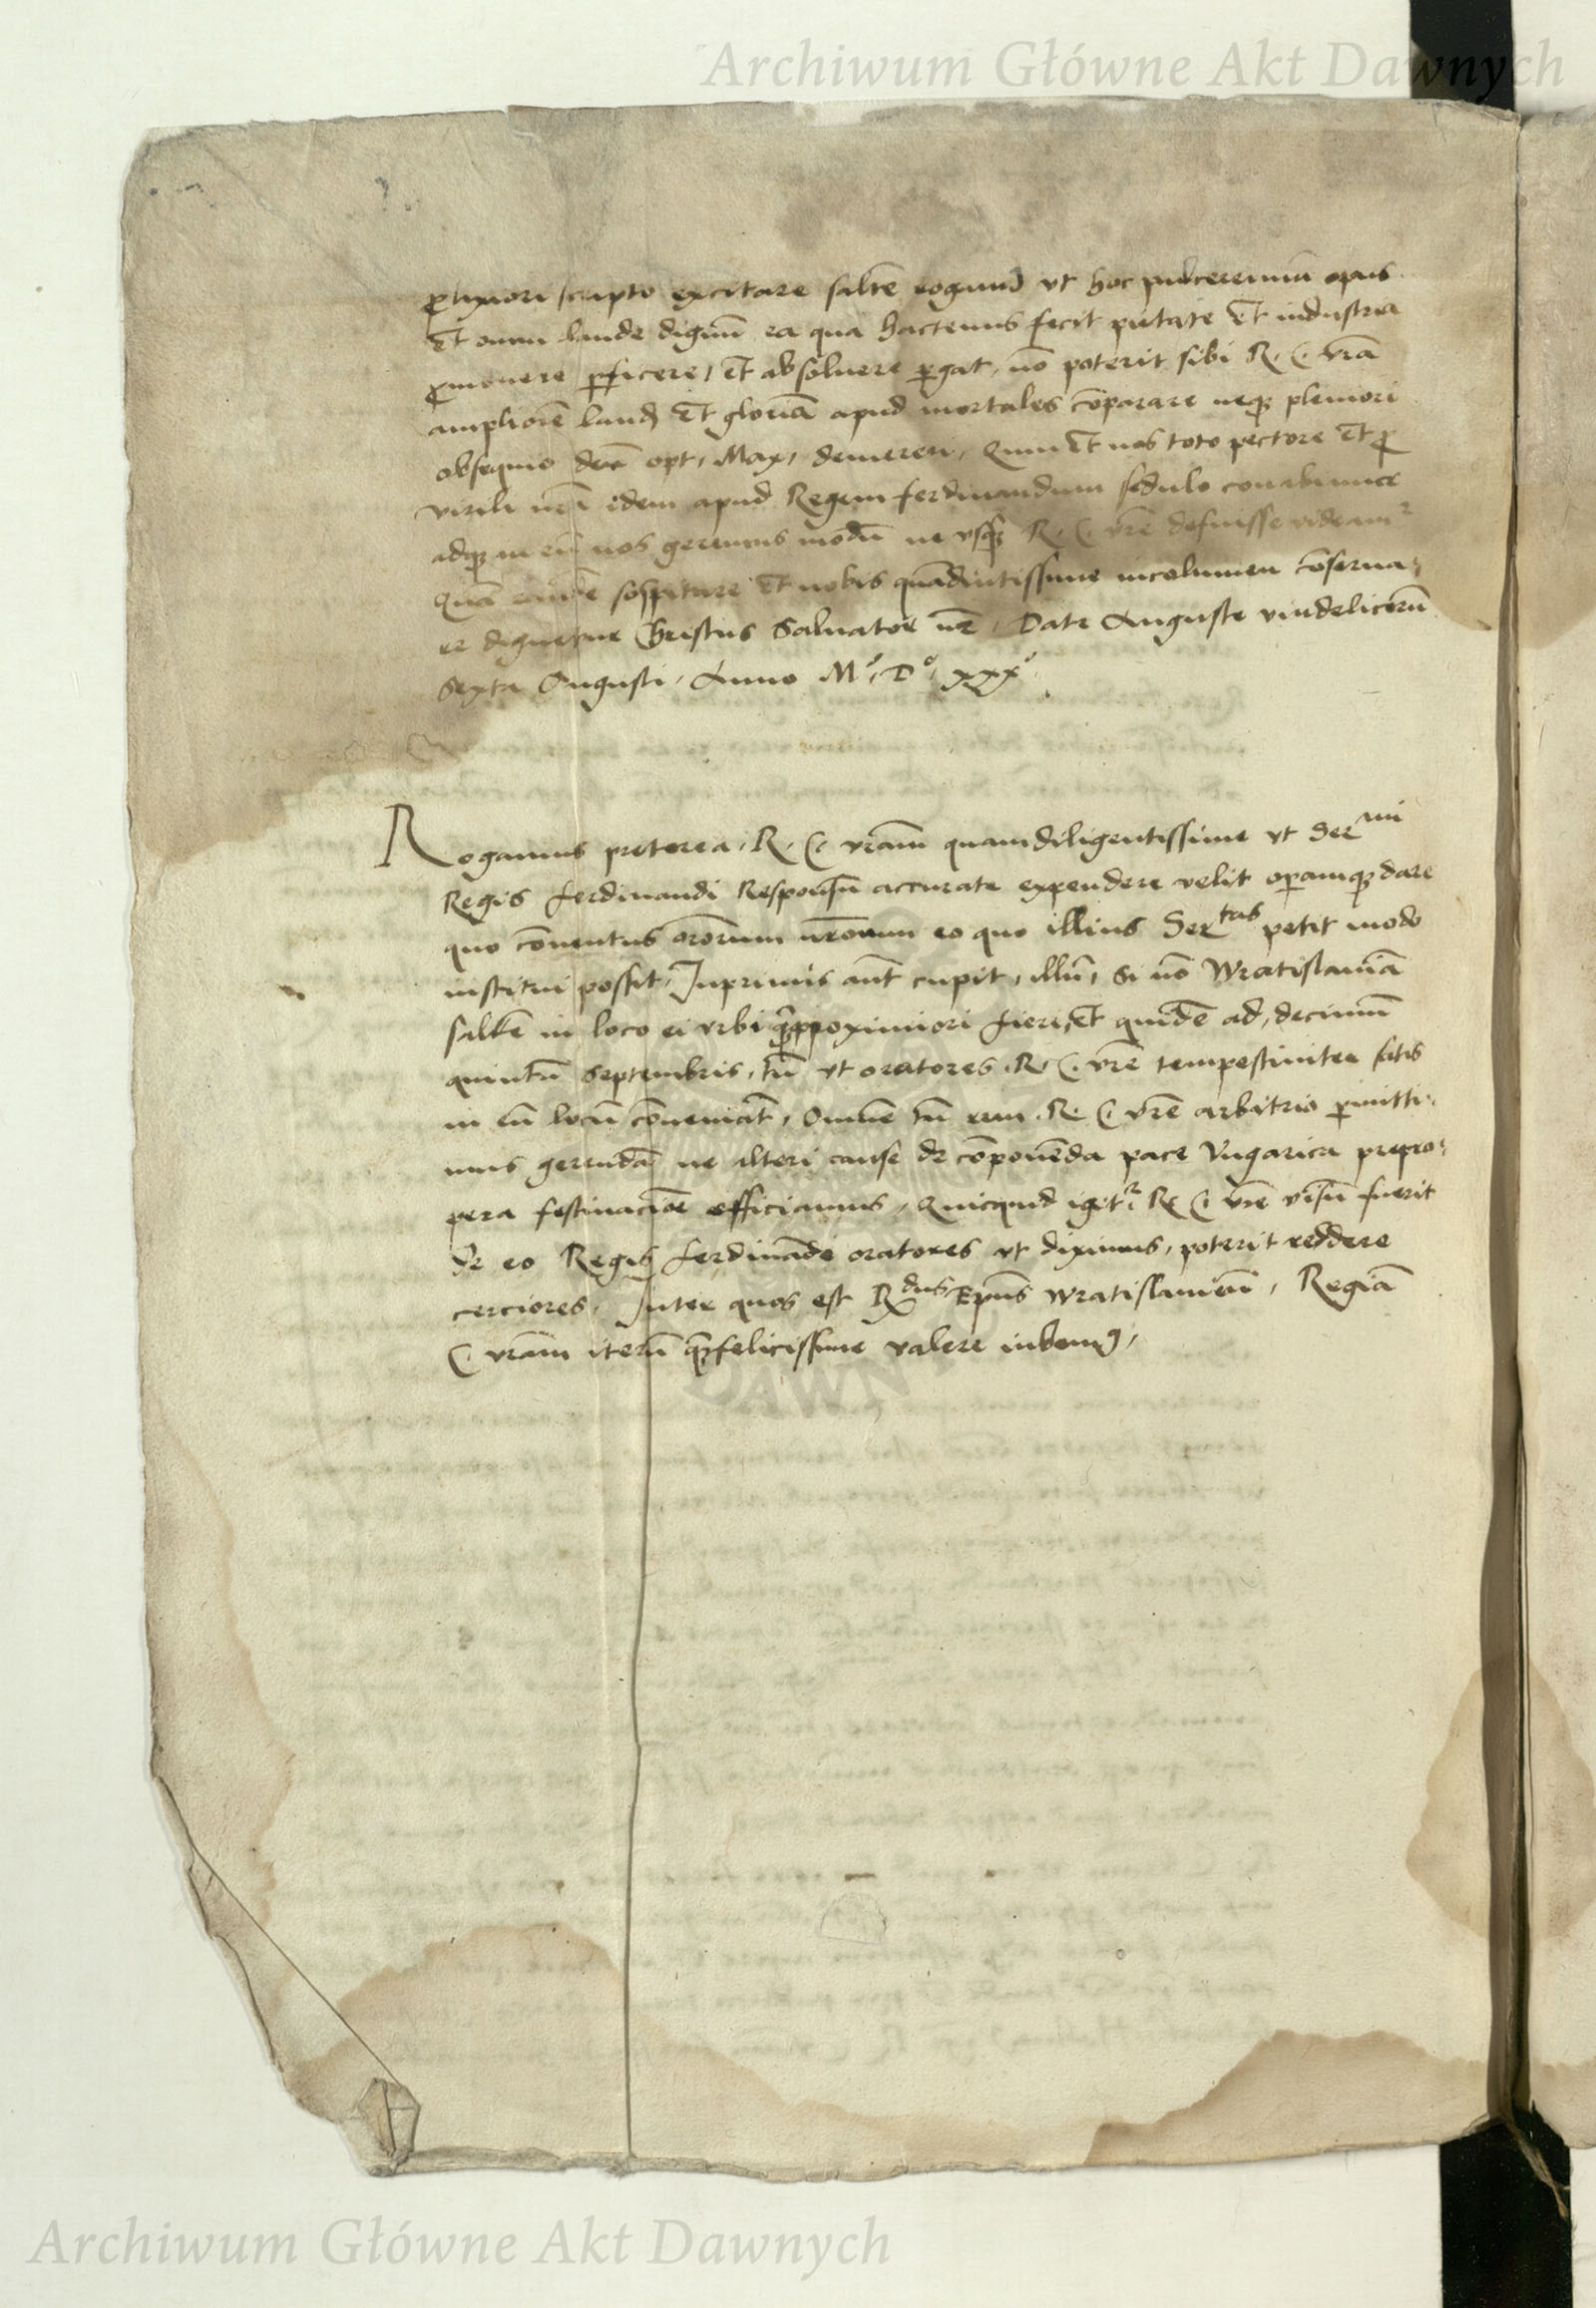 Archiwum Główne Akt Dawnych
ꝓlixiori scripto excitare saltē rogamꝰ vt hoc pulcerrimū opus
Et omni laude dignū ea qua hactenus fecit pietate Et industria
ꝓmouere ꝑficere, Et absoluere ꝑgat, nō poterit sibi R. C. vrā
ampliorē laudē Et gloriā apud mortales cōparare neqȝ pleniori
obsequio deū opt, Max, demereri, Qum Et nos toto pectore Et ꝓ
virili nrā idem apud Regem ferdinandum sedulo conabimur
adqȝ in eū nos geremus modū ne vsqȝ R. C. vrē defuisse videamr
Quā eandē sospitare Et nobis quādiutissime incolumen cōserua,
re dignetur Christus Saluator nr̄, Datȩ Auguste vindelicorū
Sexta Augusti, Anno Mº, Dº, xxxº
Rogamus preterea, R. C. vrām quamdiligentissime vt Sermi
Regis ferdinandi Responsū accurate expendere velit operamqȝ dare
quo cōuentus orōrum nrōrum eo quo illius Sertas petit modo
institui possit, Inprimis aūt cupit, illū, Si nō Wratislauiā
saltē in loco ei vrbi proximiori fieri, Et quidē ad, decimū
quintū Septembris, tū vt oratores R. C. vrē tempestiuiter satis
in eū locū cōueniāt, Omnē tū rem R. C. vrē arbitrio ꝑmitti,
mus gerendā ne alteri cause de cōponēda pace Vngarica prepro,
pera festinaciōe officiamus, Quicquid igitr R. C. vrē visū fuerit
de eo Regis ferdinādi oratores vt diximus, poterit reddere
cerciores, Inter quos est Rdus Epūs Wratislauieñ, Regiā
C. vrām iterū quāfelicissime valere iubemꝰ,
Archiwum Główne Akt Dawnych